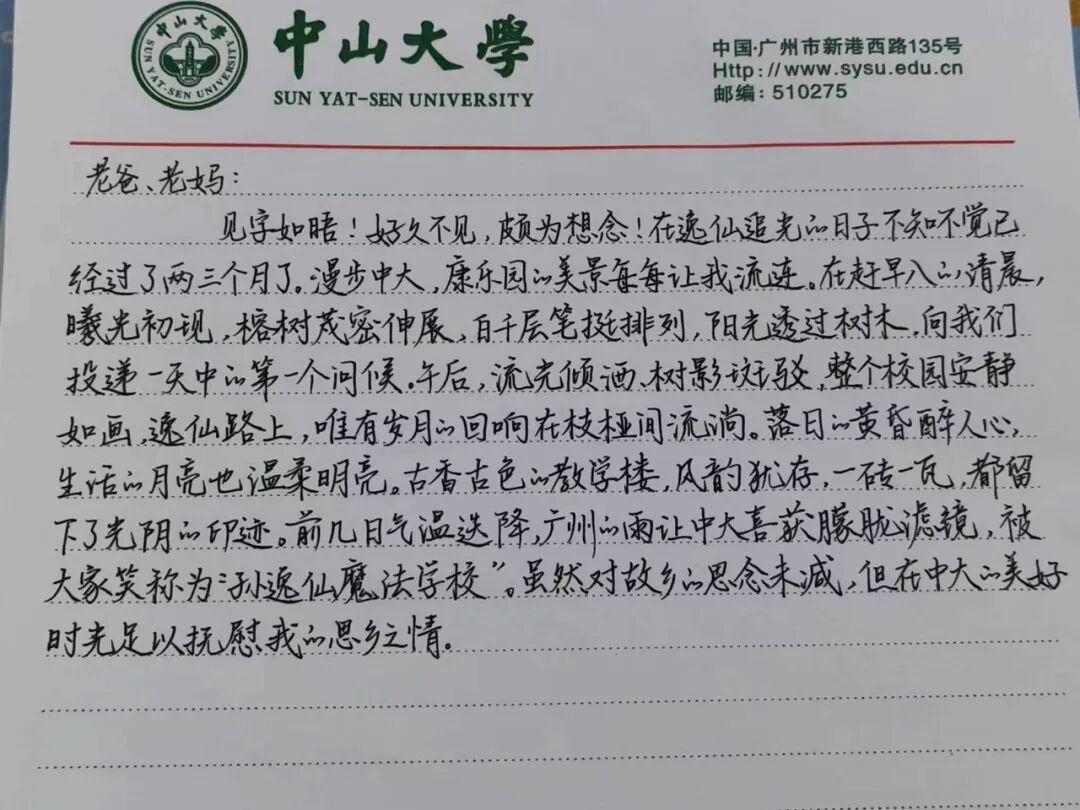 中山大學
SUN YAT-SEN UNIVERSITY
中山大學
SUN YAT-SEN UNIVERSITY
中国·广州市新港西路135号
Http://www.sysu.edu.cn
邮编:510275
老爸、老妈:
见字如晤!好久不见,颇为想念!在逸仙追光的日子不知不觉已
经过了两三个月了。漫步中大,康乐园的美景每每让我流连。在赶早八的清晨,
曦光初现,榕树茂密伸展,百千层笔挺排列,阳光透过树木,向我们
投递一天中的第一个问候。午后,流光倾洒、树影斑驳,整个校园安静
如画,逸仙路上,唯有岁月的回响在枝桠间流淌。落日的黄昏醉人心,
生活的月亮也温柔明亮。古香古色的教学楼,风韵犹存,一砖一瓦,都留
下了光阴的印迹。前几日气温迭降,广州的雨让中大喜获朦胧滤镜,被
大家笑称为“孙逸仙魔法学校”。虽然对故乡的思念未减,但在中大的美好
时光足以抚慰我的思乡之情。